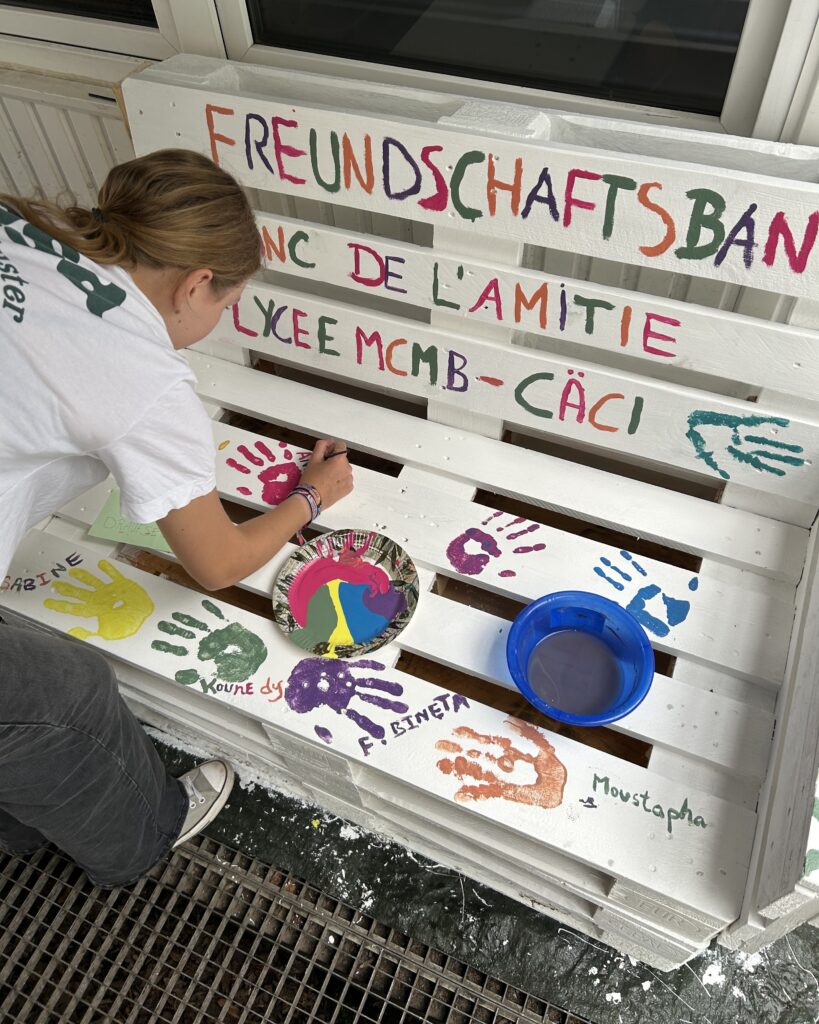 FREUNDSCHAFTSBAN
NC DE L'AMITIE
LYCEE MCMB-CÄCI
SABINE
Kounedy
F. BINETA
Moustapha